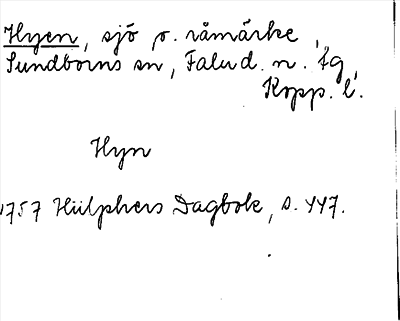 Hyen, sjö o. råmärke,
Sundborns sn, Falu d. n. fg,
Kopp. l.
Hyn
1757 Hülphers Dagbok, s. 447.